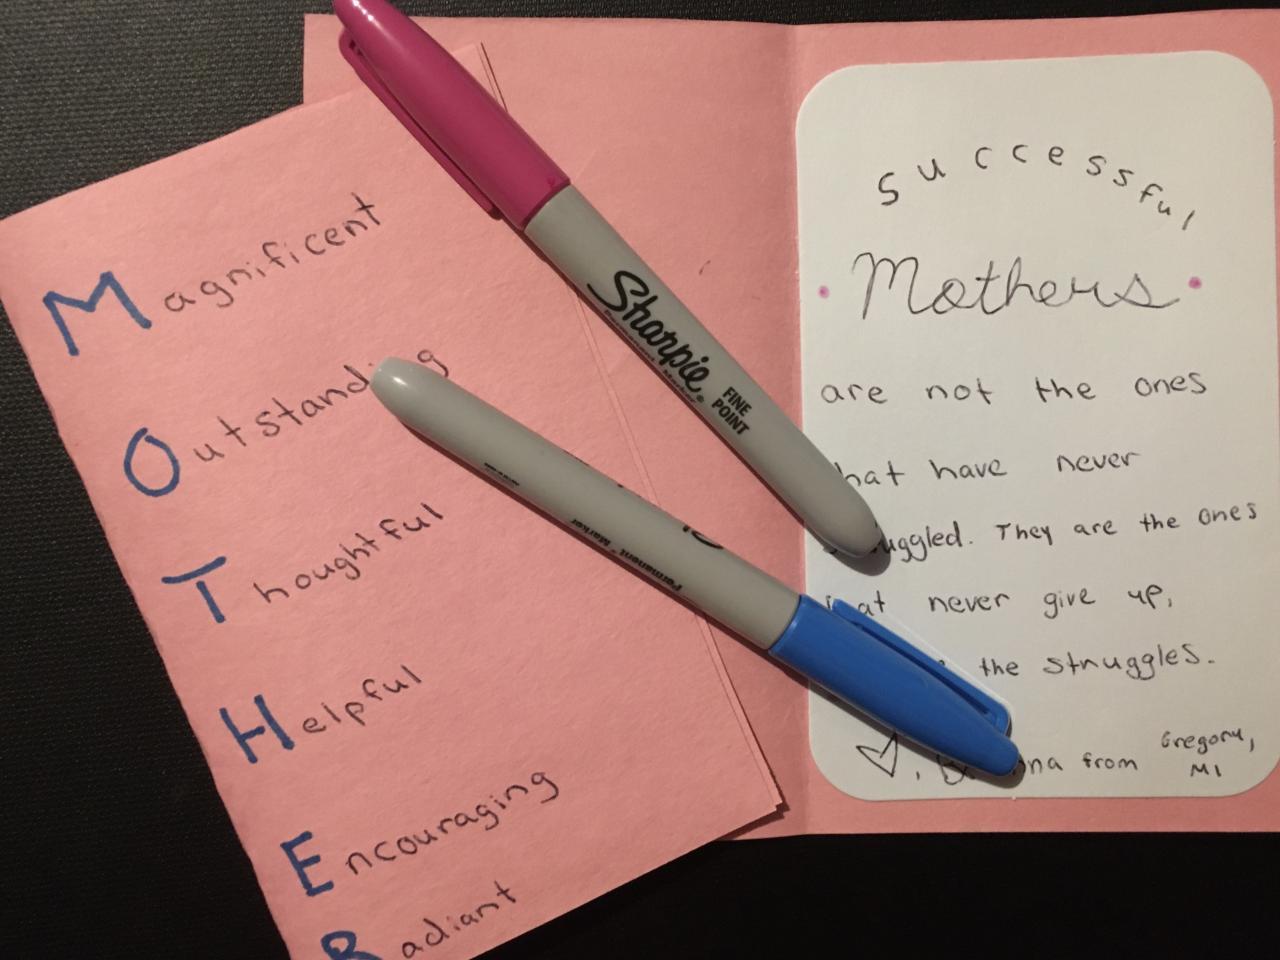 Magnificent
Outstanding
Thoughtful
Helpful
Encouraging
Radiant
Sharpie
Permanent Marker
FINE
POINT
Permanent Marker
Successful
Mothers
are not the ones
have never
They are the ones
never give up,
the struggles.
from Gregory,
MI